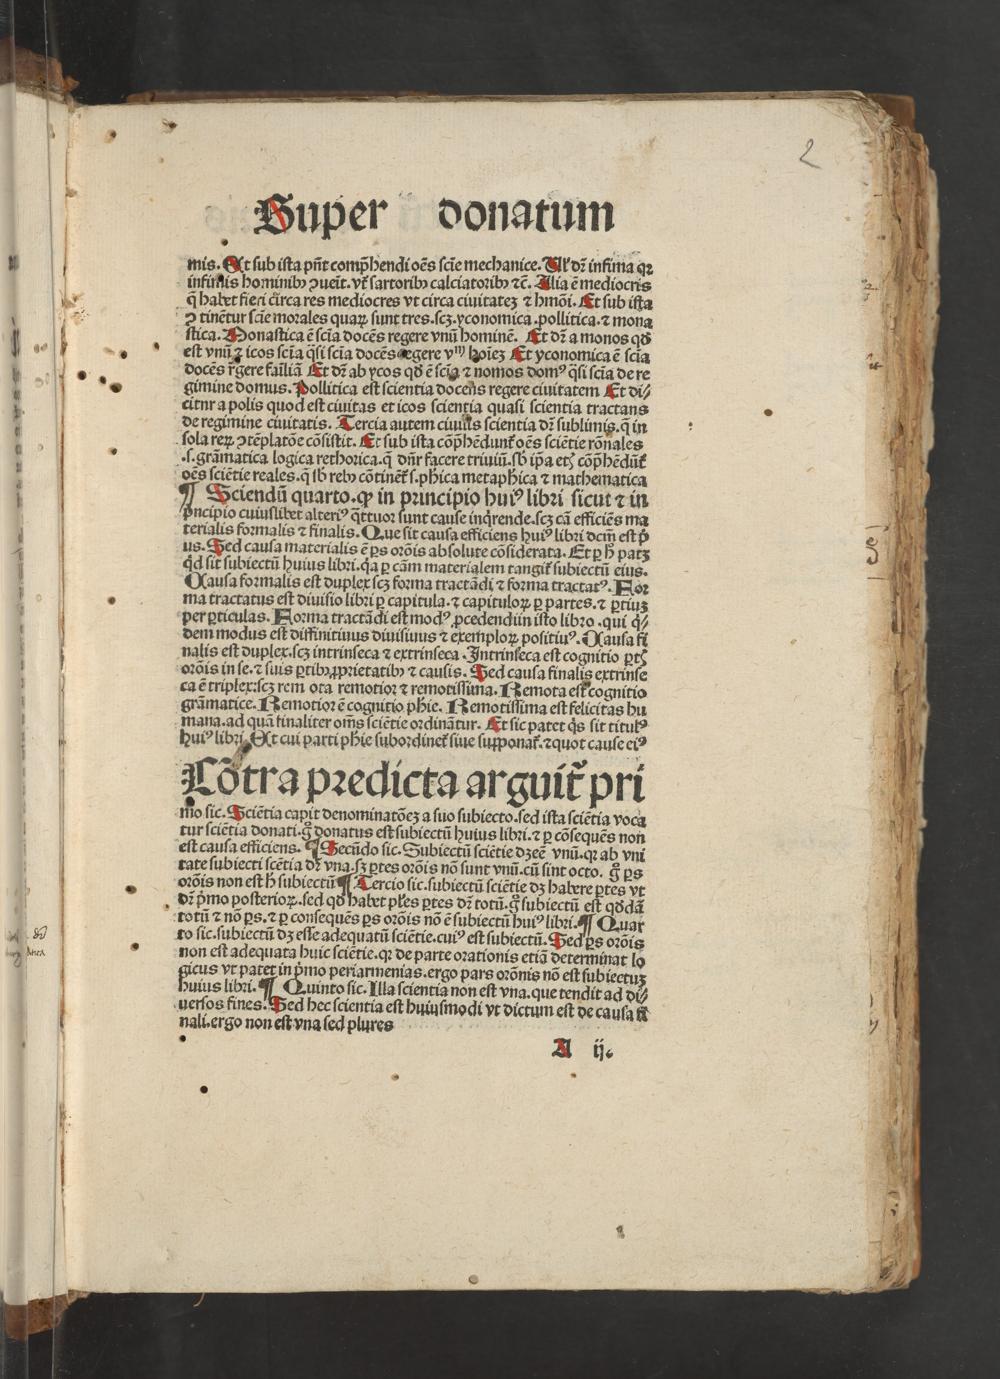 2
Super donatum
mis. Et sub ista pñt comp̃hendi oẽs scĩe mechanice. Alr̃ dr̃ infima qꝛ
infimis hominibꝫ ꝯueĩt. vt̃ sartoribꝫ calciatoribꝫ ⁊c̃. Alia ẽ mediocris
q̃ habet fieri circa res mediocres vt circa ciuitateꝫ ⁊ hmõi. Et sub ista
ꝯ tinẽtur scĩe morales quaꝝ sunt tres. scꝫ. yconomica. pollitica. ⁊ mona
stica. Monastica ẽ scĩa docẽs regere vnũ hominẽ. Et dr̃ a monos qđ
est vnũ ⁊ icos scĩa q̃si scĩa docẽs regere vnũ hoieꝫ Et yconomica ẽ scĩa
docẽs r̃gere faĩliã Et dr̃ ab ycos qđ ẽ scĩa ⁊ nomos domꝰ q̃si scĩa de re
gimine domus. Pollitica est scientia docens regere ciuitatem Et di⸗
citnr a polis quod est ciuitas et icos scientia quasi scientia tractans
de regimine ciuitatis. Tercia autem ciuilis scientia dr̃ sublimis. q̃ in
sola reꝝ ꝯtẽplatõe cõsistit. Et sub ista cõp̃hẽdunt̃ oẽs sciẽtie rõnales
.s. grãmatica logica rethorica. q̃ dñr facere triuiũ. sb̃ ip̃a etꝫ cõp̃hẽdũt̃
oẽs sciẽtie reales. q̃ sb̃ rebꝫ cõtinẽt̃ .s. ph̃ica metaph̃ica ⁊ mathematica
¶ Sciendũ quarto. ꝙ in principio huiꝰ libri sicut ⁊ in
p̃ncipio cuiuslibet alteriꝰ q̃ttuor sunt cause inq̃rende. scꝫ cã efficiẽs ma
terialis formalis ⁊ finalis. Que sit causa efficiens huiꝰ libri dcm̃ est p̃
us. Sed causa materialis ẽ ꝑs orõis absolute cõsiderata. Et ꝑ h̃ patꝫ
q̃d sit subiectũ huius libri. q̃a ꝑ cãm materialem tangit̃ subiectũ eius.
Causa formalis est duplex scꝫ forma tractãdi ⁊ forma tractatꝰ. For
ma tractatus est diuisio libri ꝑ capitula. ⁊ capituloꝝ ꝑ partes. ⁊ ꝑtiuꝫ
per ꝑticulas. Forma tractãdi est modꝰ ꝓcedendi in isto libro. qui q̃⸗
dem modus est diffinitiuus diuisiuus ⁊ exemploꝝ positiuꝰ. Causa fi
nalis est duplex. scꝫ intrinseca ⁊ extrinseca. Intrinseca est cognitio ꝑtꝫ
orõis in se. ⁊ suis ꝑtibꝫ ꝓprietatibꝫ ⁊ causis. Sed causa finalis extrinse
ca ẽ triplex: scꝫ rem ota remotior ⁊ remotissima. Remota est cognitio
grãmatice. Remotior ẽ cognitio ph̃ie. Remotissima est felicitas hu
mana. ad quã finaliter om̃s sciẽtie ordinãtur. Et sic patet q̃s sit titulꝰ
huiꝰ libri. Et cui parti ph̃ie subordinet̃ siue supponat̃. ⁊ quot cause eiꝰ
Cõtra predicta arguit̃ pri
mo sic. Sciẽtia capit denominatõeꝫ a suo subiecto. sed ista sciẽtia voca
tur sciẽtia donati. g̊ donatus est subiectũ huius libri. ⁊ ꝑ cõsequẽs non
est causa efficiens. ¶ Secũdo sic. Subiectũ sciẽtie dꝫ eẽ vnũ. qꝛ ab vni
tate subiecti scẽtia dr̃ vna. sꝫ ꝑtes orõis nõ sunt vnũ. cũ sint octo. g̊ ꝑs
orõis non est h̃ subiectũ ¶ Tercio sic. subiectũ sciẽtie dꝫ habere ꝑtes vt
dr̃ p̃mo posterioꝝ. sed qđ habet pl̃es ꝑtes dr̃ totũ. g̊ subiectũ est qđdã
totũ ⁊ nõ ꝑs. ⁊ ꝑ consequẽs ꝑs orõis nõ ẽ subiectũ huiꝰ libri. ¶ Quar
to sic. subiectũ dꝫ esse adequatũ sciẽtie. cuiꝰ est subiectũ. Sed ꝑs orõis
non est adequata huic sciẽtie. qꝛ de parte orationis etiã determinat lo
gicus vt patet in p̃mo periarmenias. ergo pars orõnis nõ est subiectuꝫ
huius libri. ¶ Quinto sic. Illa scientia non est vna. que tendit ad di⸗
uersos fines. Sed hec scientia est huiusmodi vt dictum est de causa fi
nali. ergo non est vna sed plures
A ij.